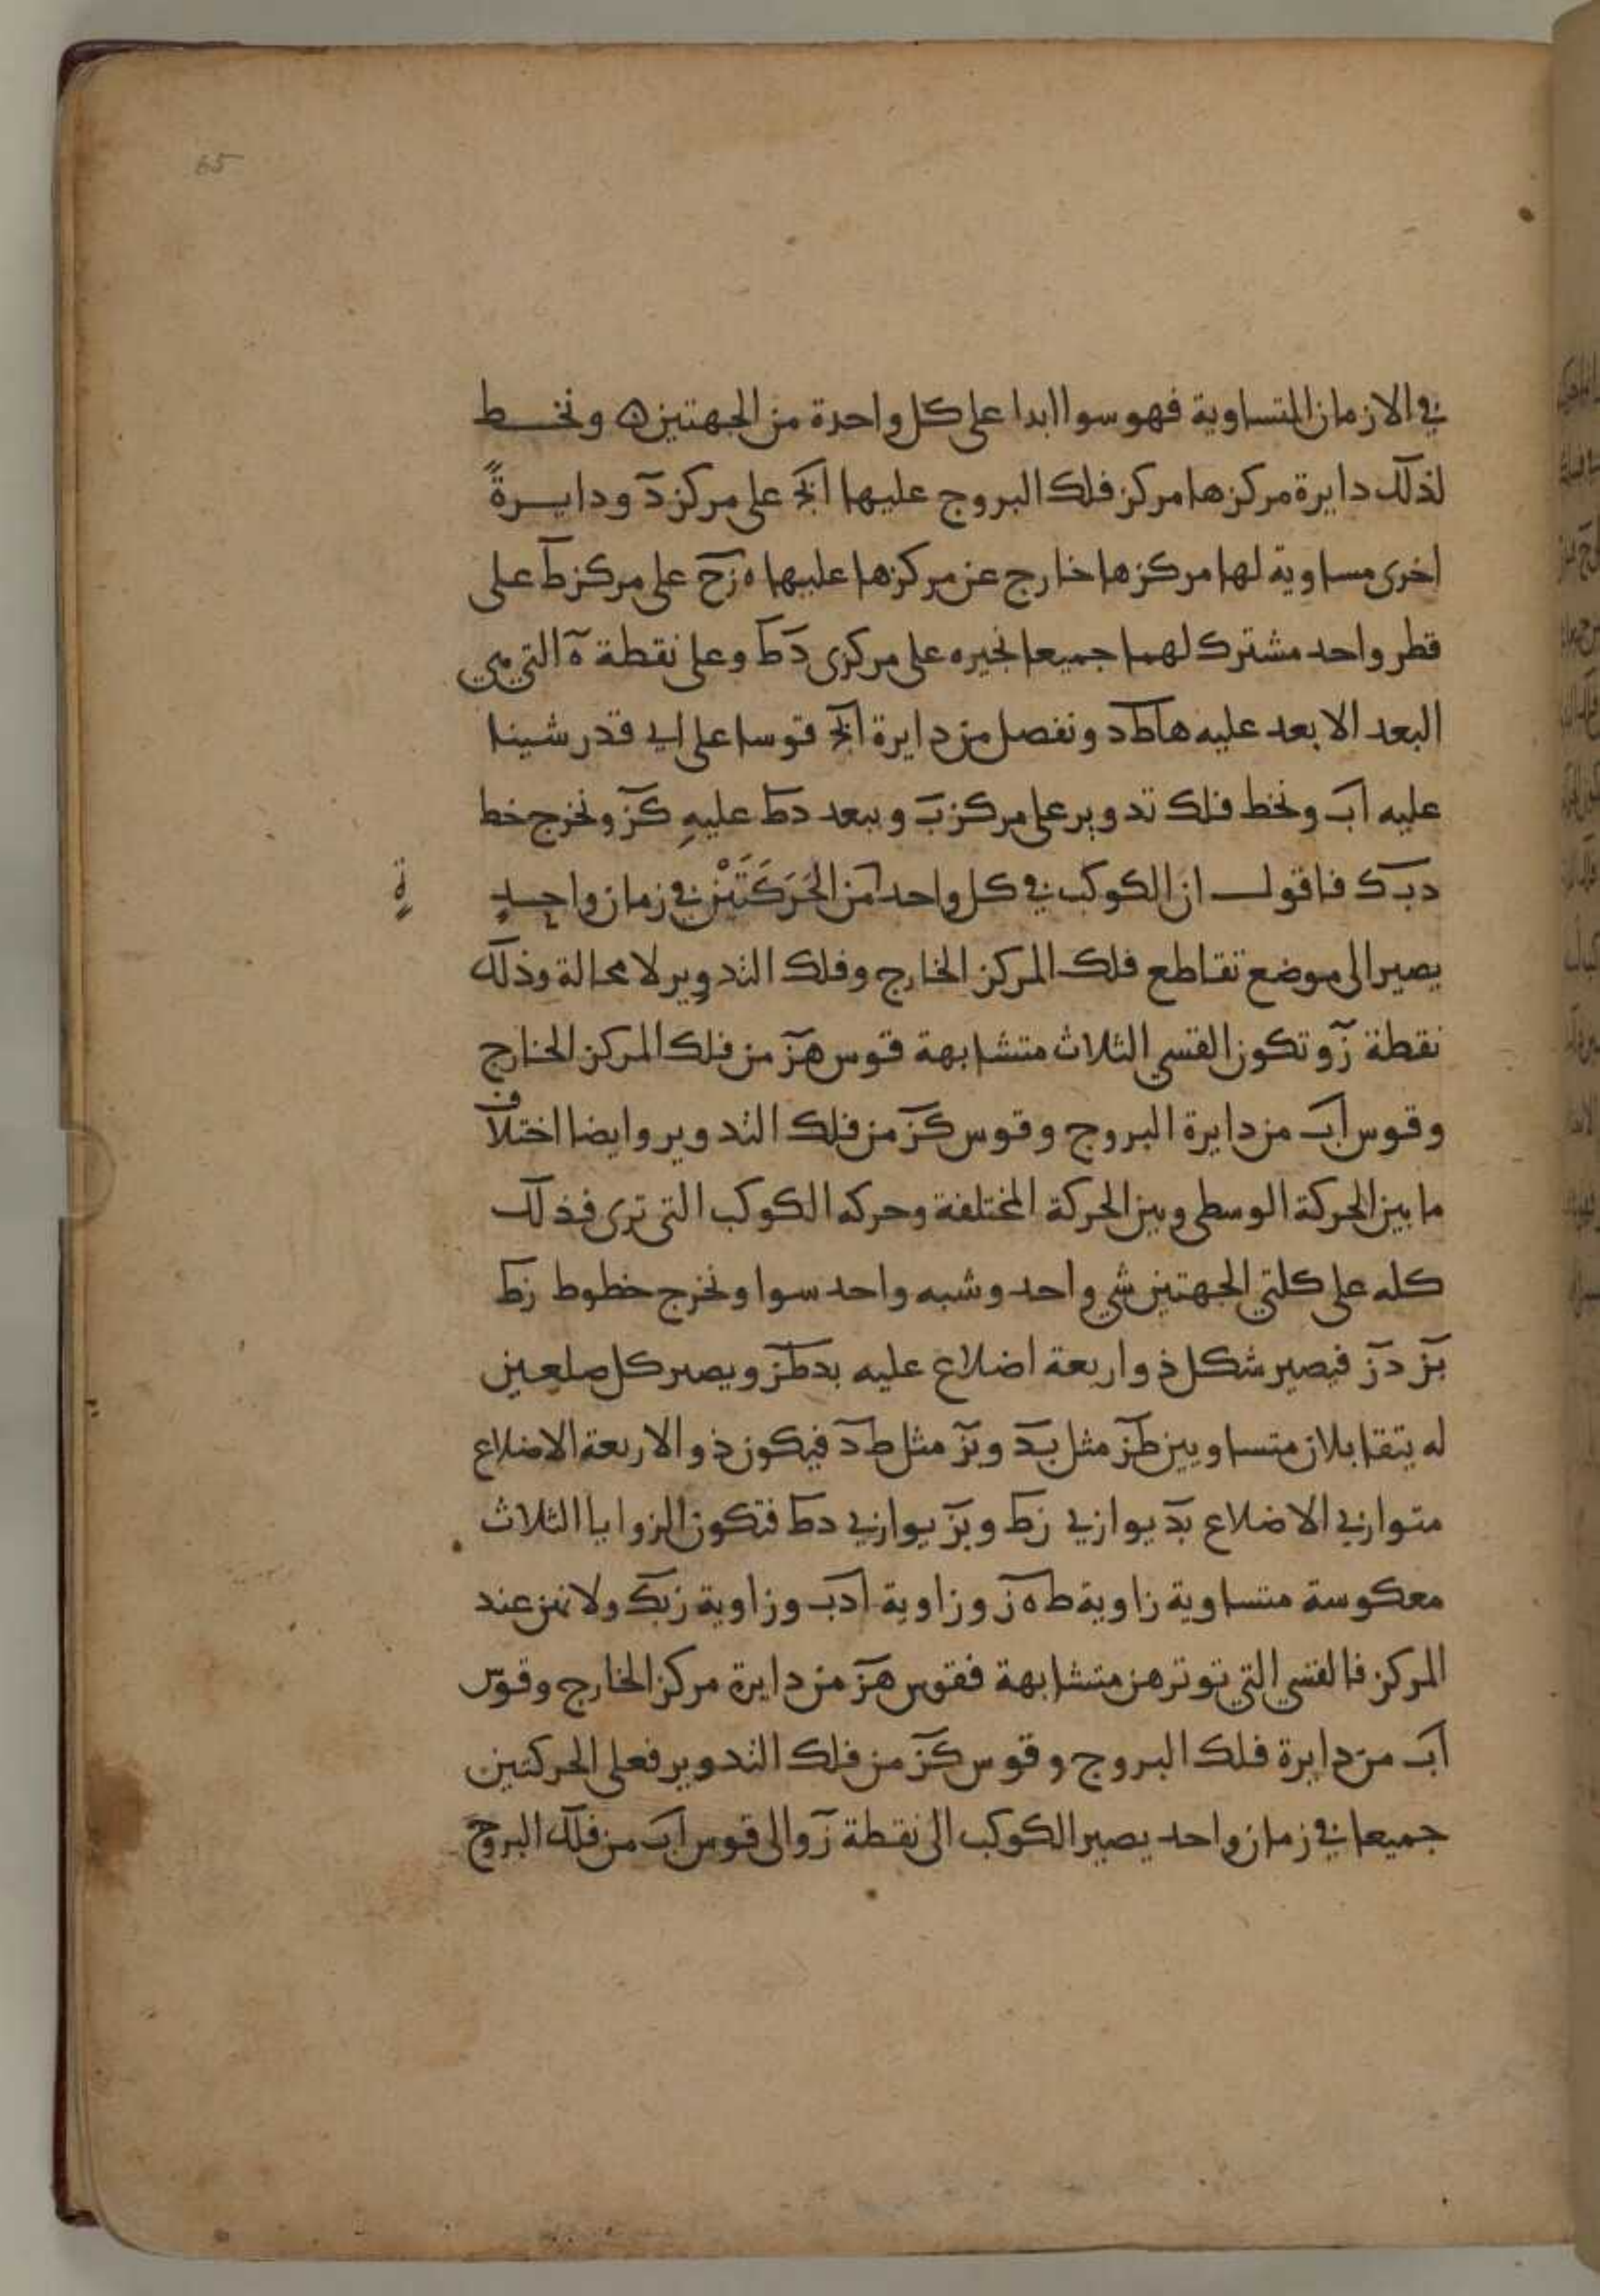 65
في الازمان المتساوية فهو سوا ابدا على كل واحدة من الجهتين ه ونخط
لذلك دايرة مركزها مركز فلك البروج عليها ابج على مركز د ودايرةً
اخرى مساوية لها مركزها خارج عن مركزها عليها ه زح على مركز ط على
قطر واحد مشترك لهما جميعا نجيزه على مركزي دط وعلى نقطة ه التي هي
البعد الابعد عليه هاطد ونفصل من دايرة ابج قوسا على اي قدر شينا
عليه اب ونخط فلك تدوير على مركز ب وببعد دط عليهِ كز ونخرج خط
دبك فاقول ان الكوكب في كل واحد من الحَرَكَتَيْن في زمان واحِدٍ
ةٍ
يصير الى موضع تقاطع فلك المركز الخارج وفلك التدوير لا محالة وذلك
نقطة ز وتكون القسي الثلاث متشابهة قوس هز من فلك المركز الخارج
وقوس اب من دايرة البروج وقوس كز من فلك التدوير وايضا اختلاف
ما بين الحركة الوسطى وبين الحركة المختلفة وحركه الكوكب التي ترى فذلك
كله على كلتي الجهتين شي واحد وشبه واحد سوا ونخرج خطوط زط
بز دز فيصير شكل ذو اربعة اضلاع عليه بدطز ويصير كل ضلعين
له يتقابلان متساويين طز مثل بد وبز مثل طد فيكون ذو الاربعة الاضلاع
متوازي الاضلاع بد يوازي زط وبز يوازي دط فتكون الزوايا الثلاث
معكوسة متساوية زاوية ط ه ز وزاوية ادب وزاوية زبك ولانهن عند
المركز فالقسي التي توترهن متشابهة فقوس هز من دايرة مركز الخارج وقوس
اب من دايرة فلك البروج وقوس كز من فلك التدوير فعلى الحركتين
جميعا في زمان واحد يصير الكوكب الى نقطة ز والى قوس اب من فلك البروج